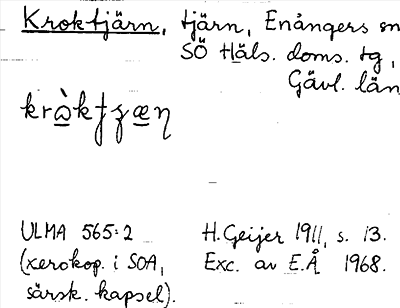 Kroktjärn, tjärn, Enångers sn
SÖ Häls. doms. tg,
Gävl. län
ULMA 565:2
(xerokop. i SOA,
särsk. kapsel).
H. Geijer 1911, s. 13.
Exc. av E.Å 1968.